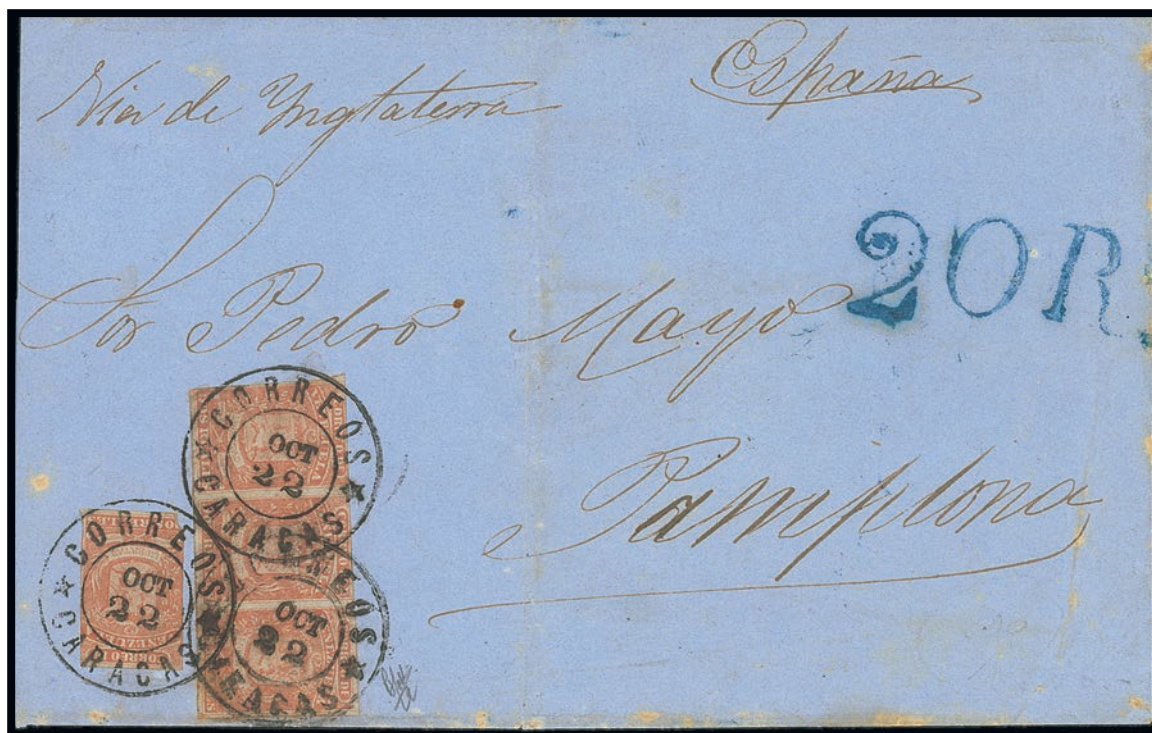 Via de Ynglaterra
España
20R
Sor Pedro Mayo
Pamplona
CORREOS
OCT
22
CARACAS
CORREOS
OCT
22
CARACAS
CORREOS
OCT
22
CARACAS